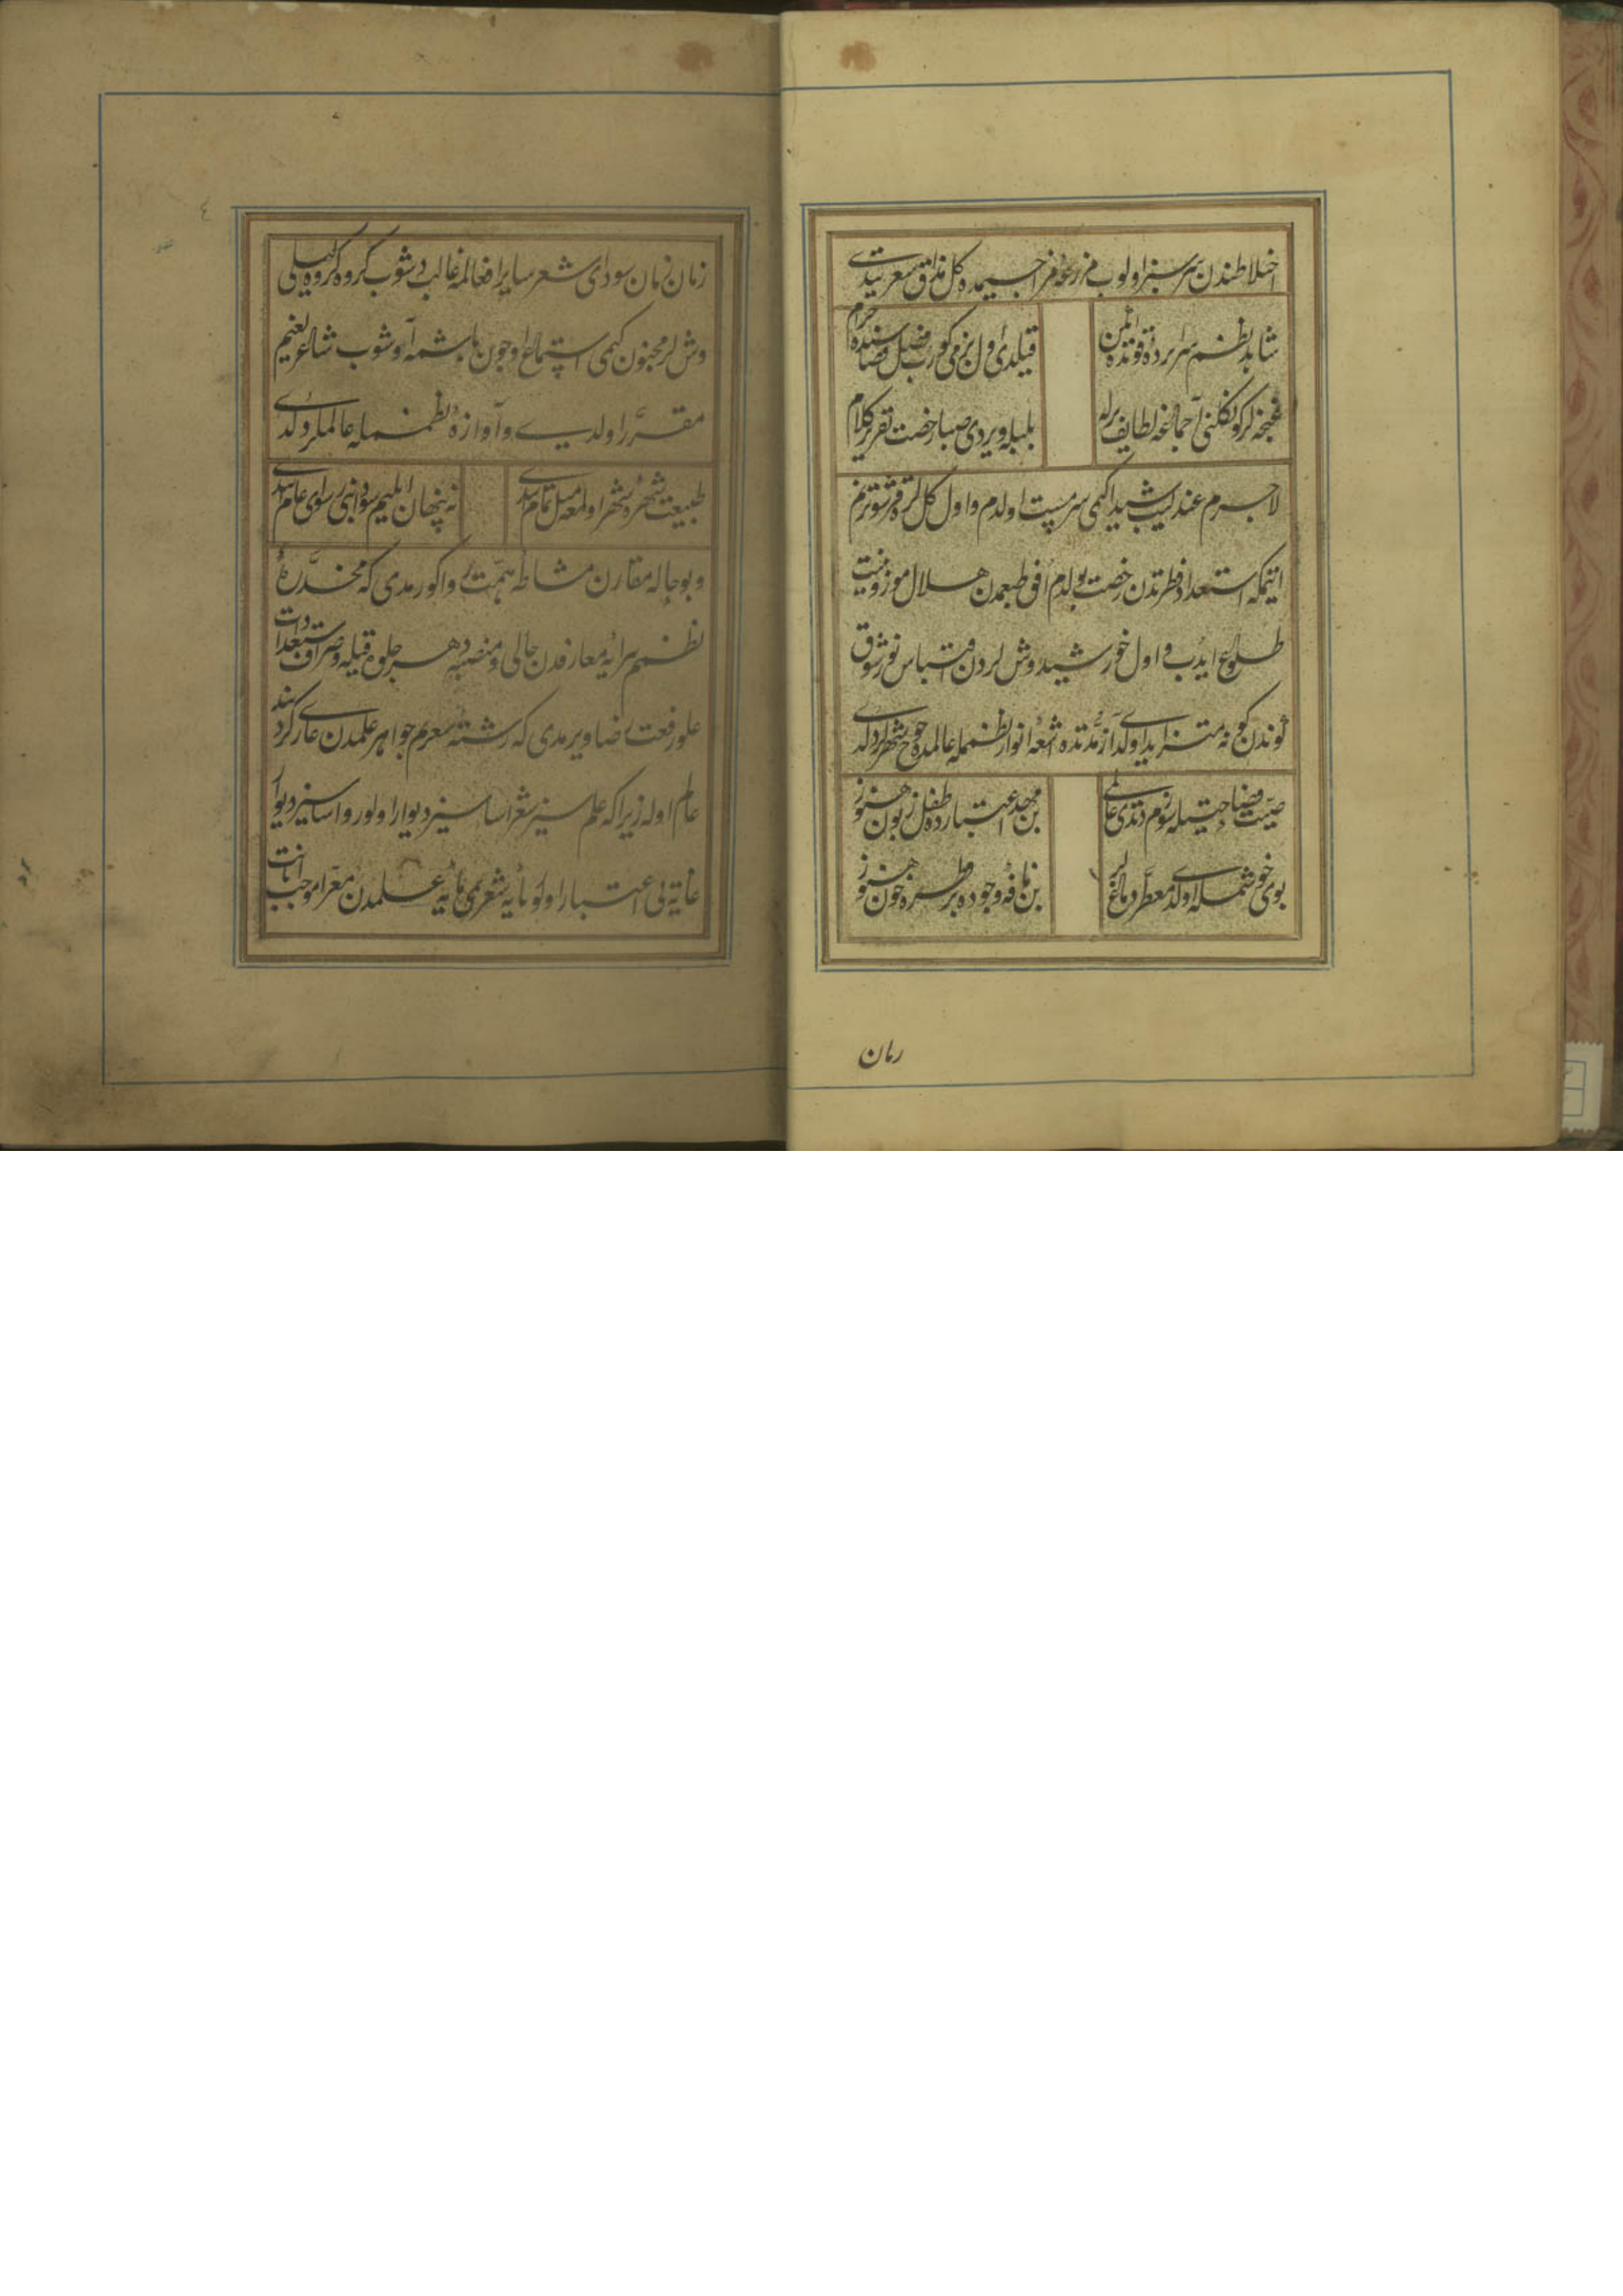 اختلاطندن سرسبز اولوب مزرعۀ مزاجیمده کل مذاق شعر بیتدی
شاهد نظم سراپرده قوتده ایکن
قیلدی اول بزمی کورب فضل فضاسنده خرام
غنچه لر کوکلنی آچماغه لطایف برله
بلبله ویردی صبا رخصت تقریر کلام
لاجرم عندلیب شیدا کیمی سرمست اولدم و اول کل لره قرشو ترنم
ایتمکه استعداد فطرتدن رخصت بولدم افق طبعمدن هلال موزونیت
طلوع ایدب و اول خورشید وش لردن اقتباس نور شوق
کوندن کونه متزاید اولدی آز مدتده اشعۀ انوار نظممله عالمده جوخ شهرلر دولدی
صیت فصاحتیله سوزم دتدی عالمی
بن مهد اعتبارده طفل زبون هنوز
بوی خوشمله اولدی معطر دماغلر
بن نافۀ وجودده بر قطره خون هنوز
زمان
زمان زمان سودای شعر سایر افعالمه غالب دشوب کروه کروه لیلی
وش لر مجنون کیمی استماع اوجون باشمه آووشوب شاعرلغیم
مقرر اولدی و آوازۀ نظممله عالملر دولدی
طبیعت شهرۀ شهر اولمغه میل تمام اتدی
نه پنهان ایلیم سودا بنی رسوای عام اتدی
و بو حاله مقارن مشاطۀ همت روا کورمدی که مخدرۀ
نظم پیرایۀ معارفدن خالی و منصبه دهر ده جلوه قیله و صراف استعدادات
علو رفعت رضا ویرمدی که رشتۀ شعرم جواهر علمدن عاری کردنبند
عالم اوله زیرا که علم سیز شعر اساسیز دیوار اولور و اساسیز دیوار
غایتده بی اعتبار اولور پایۀ شعریمی حلیۀ علمدن معرا موجب اهانت